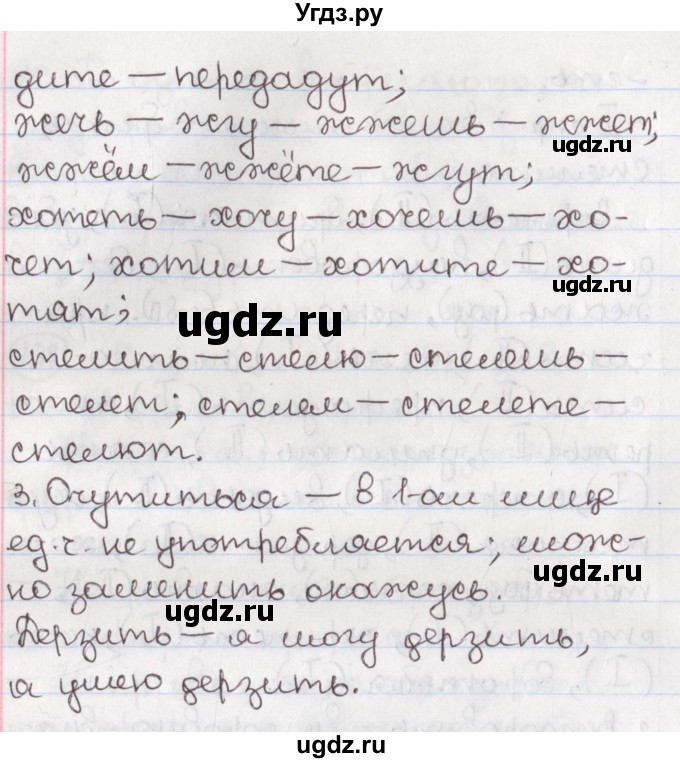 Угдз.ру
дите – передадут;
жечь – жгу – жжешь – жжет;
жжём – жжёте – жгут;
хотеть – хочу – хочешь – хо-
чет; хотим – хотите – хо-
тят;
стелить – стелю – стелешь –
стелет; стелем – стелете –
стелют.
3. Очутиться – в 1-ом лице
ед.ч. не употребляется; мож-
но заменить окажусь.
Дерзить – я могу дерзить,
я умею дерзить.
ugdz.ru
ugdz.ru
ugdz.ru
ugdz.ru
ugdz.ru
ugdz.ru